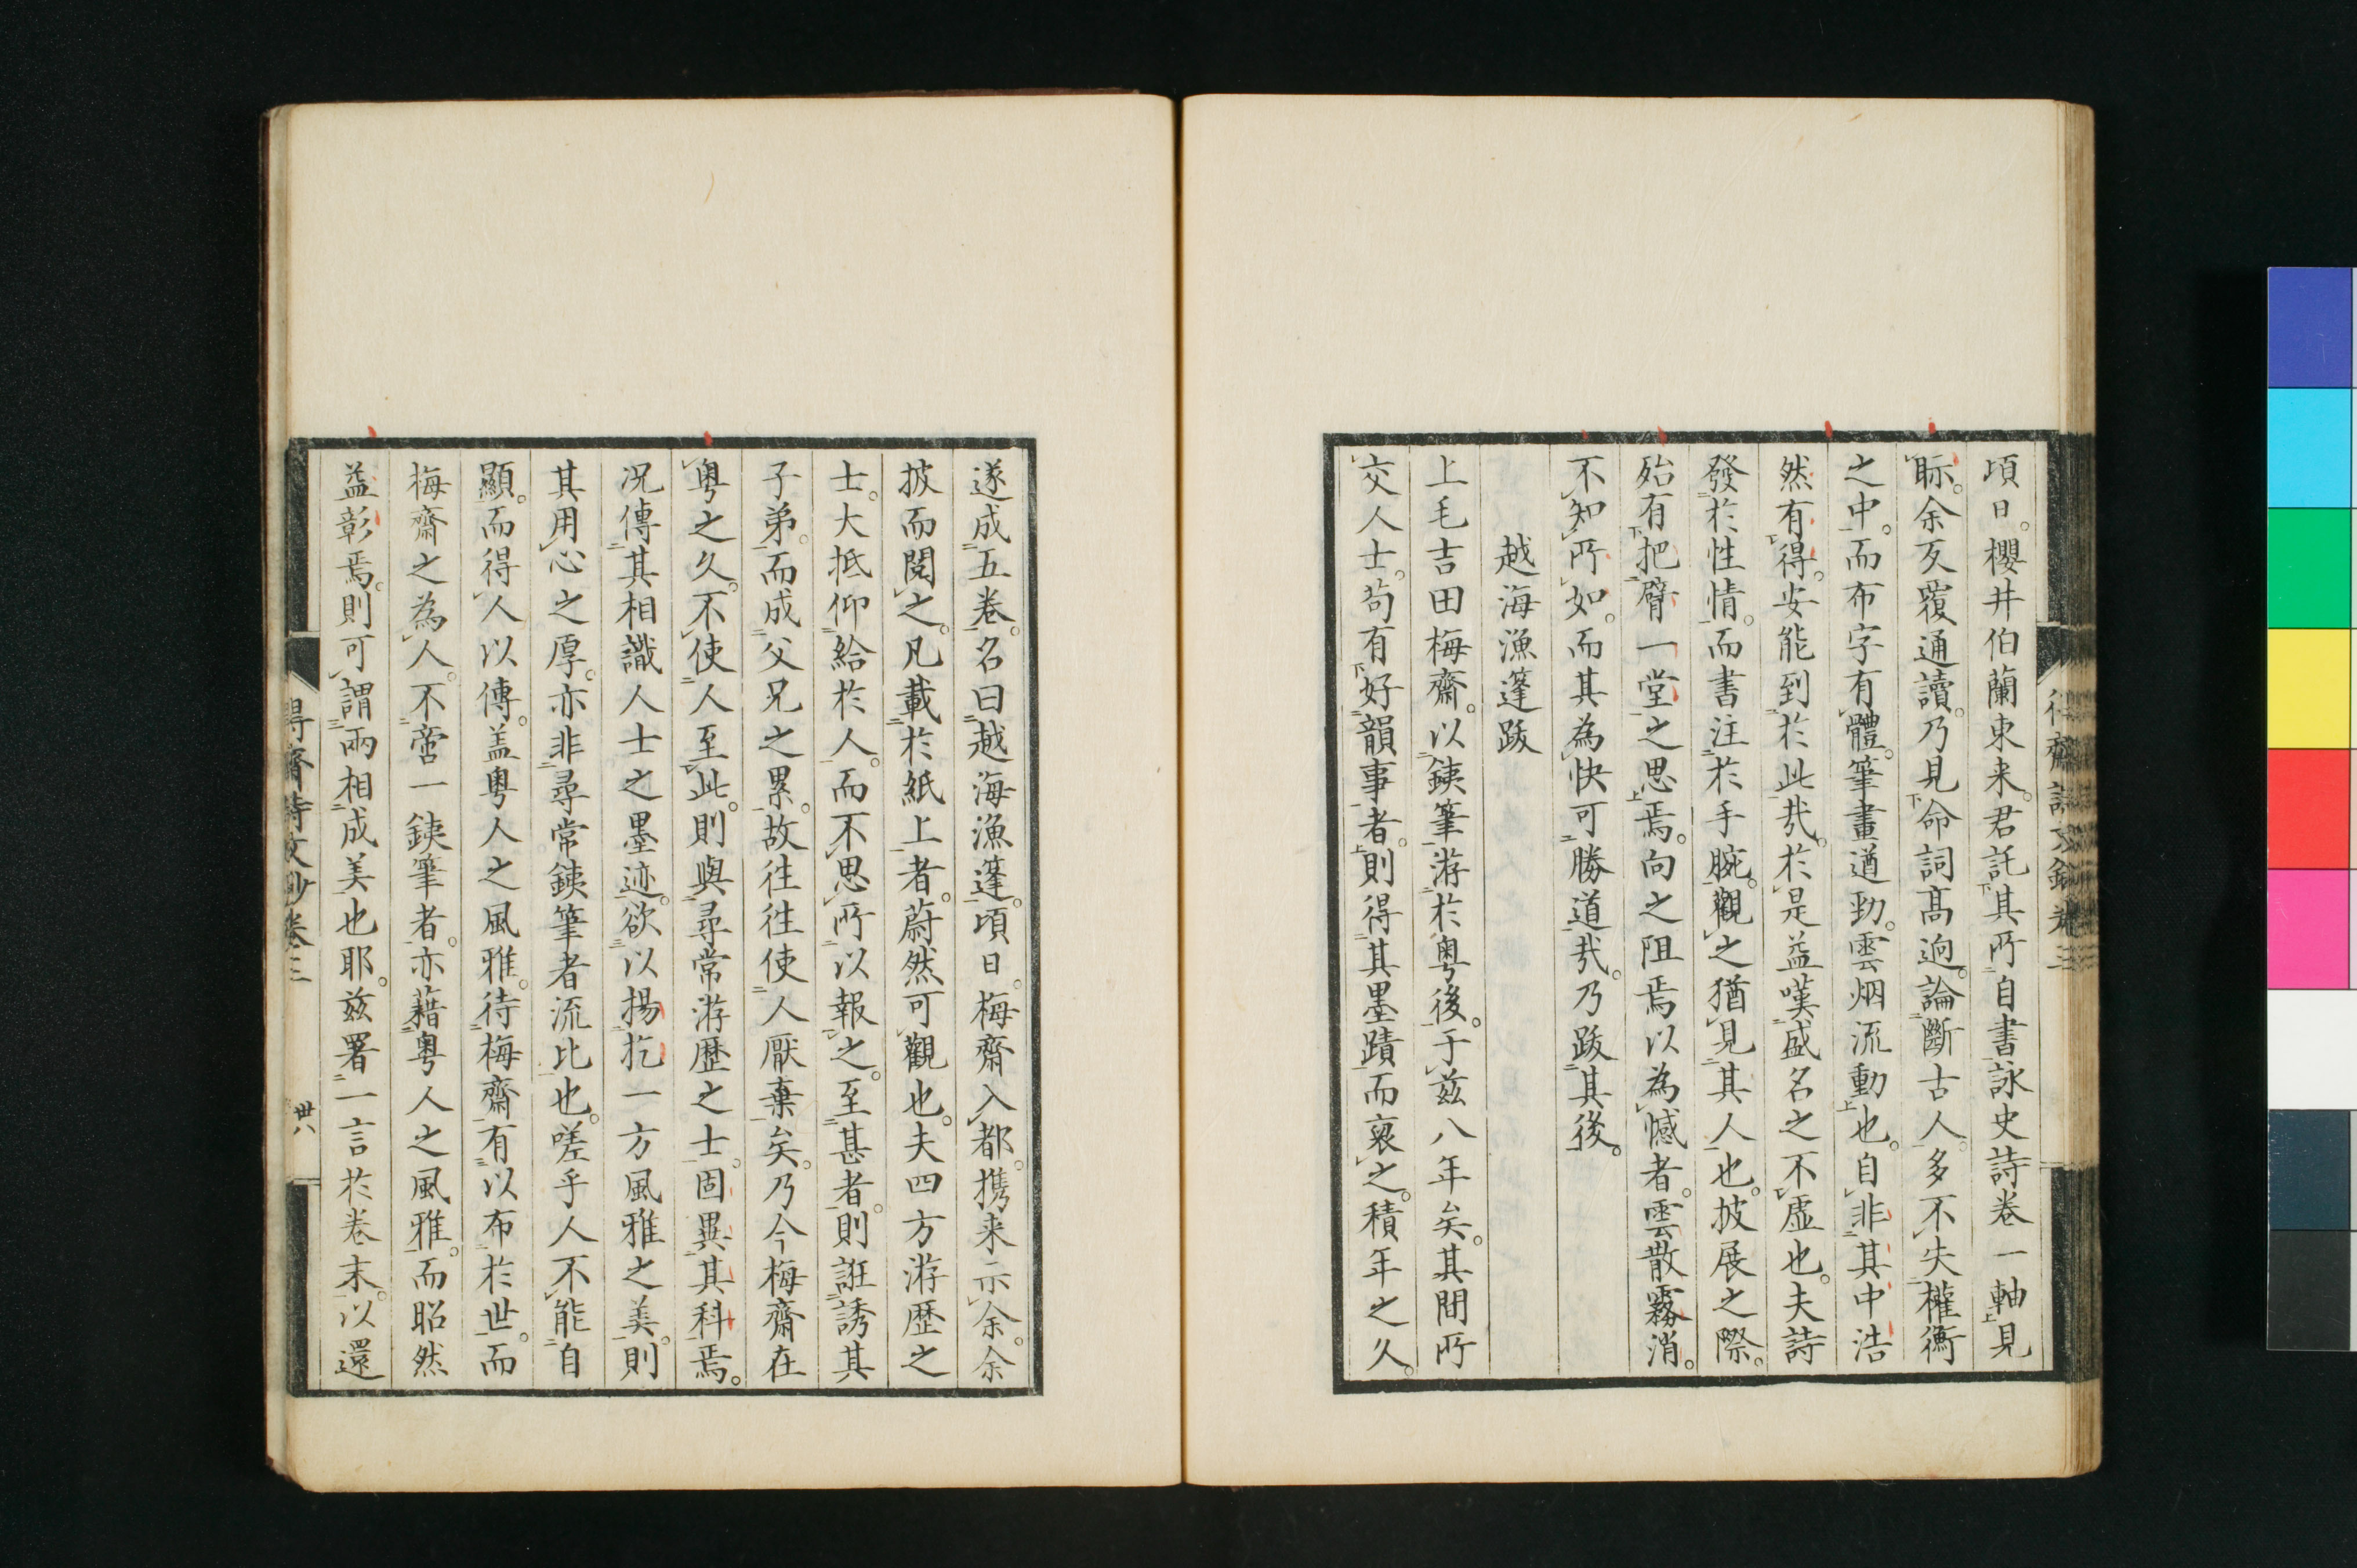 頃日。櫻井伯蘭東来。君託其所自書詠史詩卷一軸見
眎。余反覆通讀。乃見命詞髙逈。論斷古人。多不失權衡
之中。而布字有體。筆畫遒勁。雲烟流動也。自非其中浩
然有得。安能到於此㢤。於是益嘆盛名之不虚也。夫詩
發於性情。而書注於手腕。觀之猶見其人也。披展之際。
殆有把臂一堂之思焉。向之阻焉以為憾者。雲散霧消。
不知所如。而其為快可勝道㢤。乃跋其後。
越海漁蓬跋
上毛吉田梅齋。以鐵筆游於粤後。于茲八年矣。其間所
交人士。苟有好韻事者。則得其墨蹟而裒之。積年之久。
遂成五卷。名曰越海漁蓬。頃日。梅齋入都。携来示余。余
披而閲之。凡載於紙上者。蔚然可觀也。夫四方游歴之
士。大抵仰給於人。而不思所以報之。至甚者。則誑誘其
子弟。而成父兄之累。故往往使人厭棄矣。乃今梅齋在
粤之久。不使人至此。則與尋常游歴之士。固異其科焉。
况傳其相識人士之墨迹。欲以揚扢一方風雅之美。則
其用心之厚。亦非尋常鐵筆者流比也。嗟乎人不能自
顯。而得人以傳。盖粤人之風雅。待梅齋有以布於世。而
梅齋之為人。不啻一鐵筆者。亦藉粤人之風雅。而昭然
益彰焉。則可謂兩相成美也耶。茲署一言於卷末。以還
得齋詩文鈔卷三
卅八